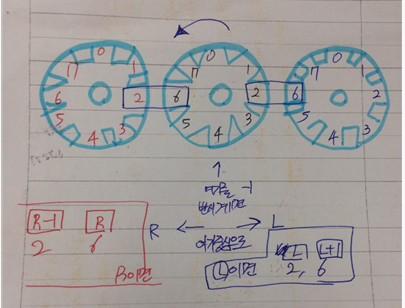 0 0 0
7 1 7 1 7 1
6 2 6 2 6 2
5 3 5 3 5 3
4 4 4
↑
-1
R-1 R
R ← → L
여기중심으로
2 6
R이면
L이면
L L+1
2, 6